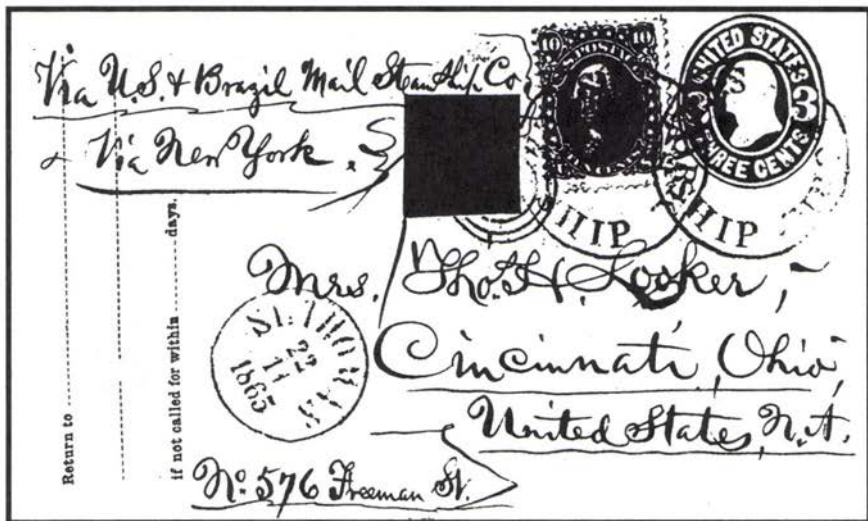 Via U.S. & Brazil Mail Steamship Co.
& Via New York.
10 10
U.S. POSTAGE
UNITED STATES
3 3
THREE CENTS
SHIP
SHIP
Mrs. Tho. H. Looker,
Cincinnati, Ohio,
United States, N.A.
No. 576 Freeman St.
ST. THOMAS
22
11
1865
Return to
if not called for within days.